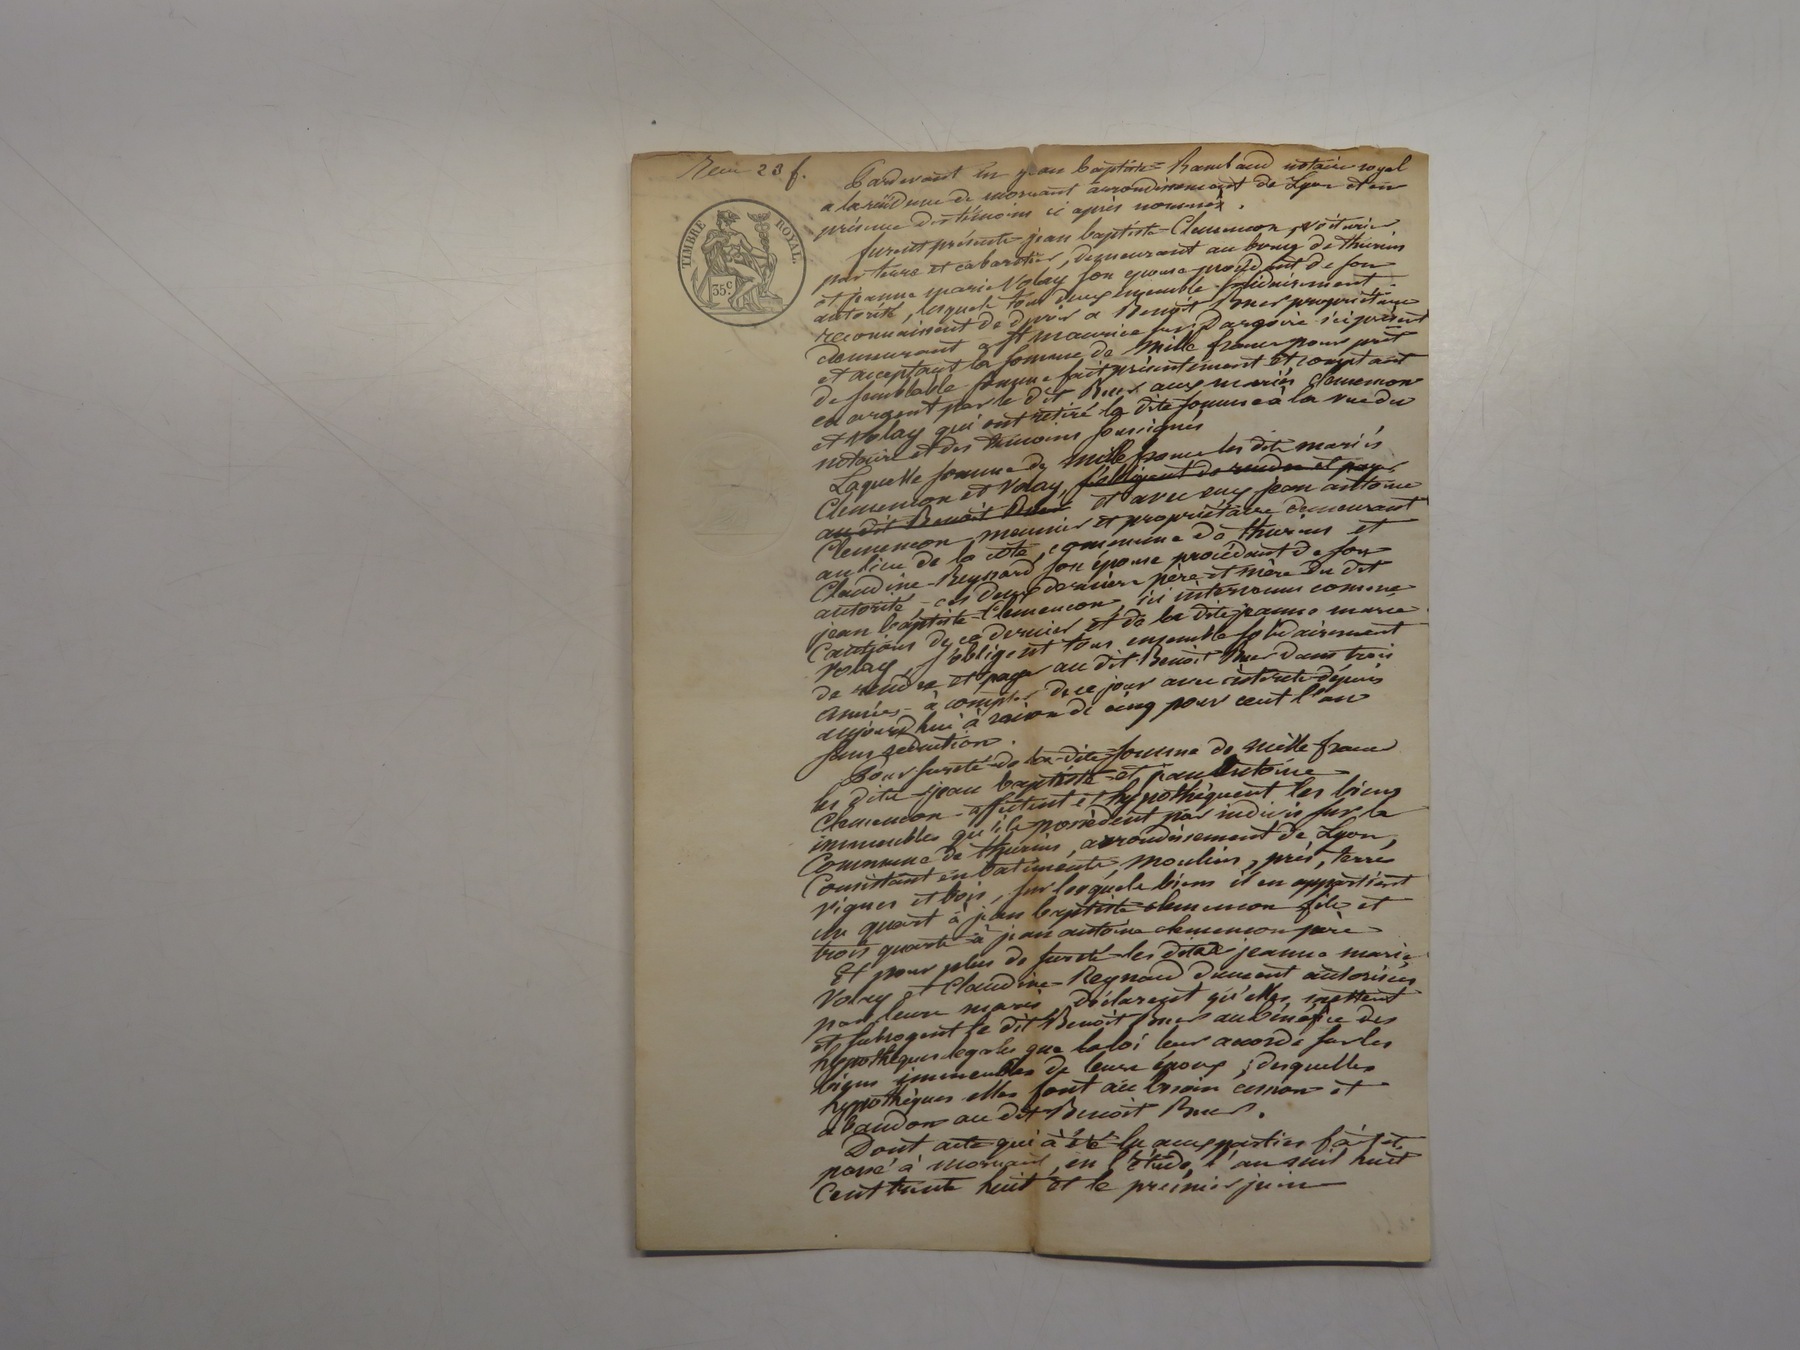 Reçu 28 f.
TIMBRE ROYAL.
35c
Pardevant Me jean baptiste Rambaud notaire royal
a la résidence de mornant arrondissement de Lyon et en
présence des témoins ci après nommés.
furent présents jean baptiste Clemencon, voiturier
par terre et cabaretier, demeurant au bourg de thurins
et jeanne marie Volay son epouse procédant de son
autorité, lesquels tous deux ensemble solidairement
reconnaissent de devoir a Benoît Buer propriétaire
demeurant a St maurice sur Dargoire ici présent
et acceptant la somme de mille francs pour prêt
de semblable somme fait présentement et comptant
en argent par le dit Buer aux mariés Clemencon
et Volay qui ont retiré la dite somme à la vue du
notaire et des témoins soussignés
Laquelle somme de mille francs les dits mariés
Clemencon et Volay, s'obligent de rendre et payer
au dit Benoît Buer et avec eux jean antoine
Clemencon, meunier et propriétaire demeurant
au lieu de la côte, commune de thurins et
Claudine Reynard son épouse procédant de son
autorité ces deux derniers père et mère du dit
jean baptiste Clemencon, ici intervenus comme
Cautions de ce dernier et de la dite jeanne marie
Volay, s'obligent tous ensemble solidairement
de rendre et payer au dit Benoît Buer dans trois
années à compter de ce jour avec intérêts depuis
aujourd'hui à raison de cinq pour cent l'an
sans réduction.
Pour sureté de la dite somme de mille francs
les dits jean baptiste et jean Antoine
Clemencon affectent et hypothèquent les biens
immeubles qu'ils possèdent par indivis sur la
Commune de thurins, arrondissement de Lyon,
Consistant en batiments, moulins, prés, terres
vignes et bois, sur lesquels biens il en appartient
un quart à jean baptiste clemencon fils et
trois quarts à jean antoine clemencon père
Et pour plus de sureté les dites jeanne marie
Volay et Claudine Reynard dument autorisées
par leurs maris, déclarent qu'elles mettent
et subrogent le dit Benoît Buer au bénéfice des
hypothèques légales que la loi leur accorde sur les
biens immeubles de leurs époux; desquelles
hypothèques elles font au besoin cession et
abandon au dit Benoît Buer.
Dont acte qui à été lu aux parties fait et
passé à mornant, en l'étude, l'an mil huit
Cent trente huit et le premier juin